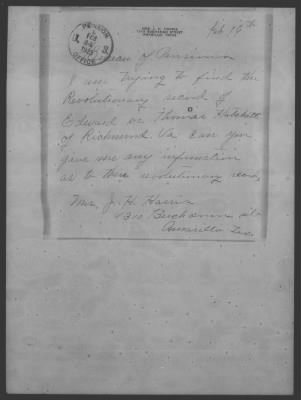 PENSION OFFICE
FEB
MRS. J. H. HARRIS
AMARILLO, TEXAS
Feb 15th
Bureau of Pensions
I am trying to find the
Revolutionary record of
Edward or Thomas Hatchett
of Richmond, Va. Can you
give me any information
as to their revolutionary record,
Mrs. J. H. Harris
Buchanan St.
Amarillo Tex.